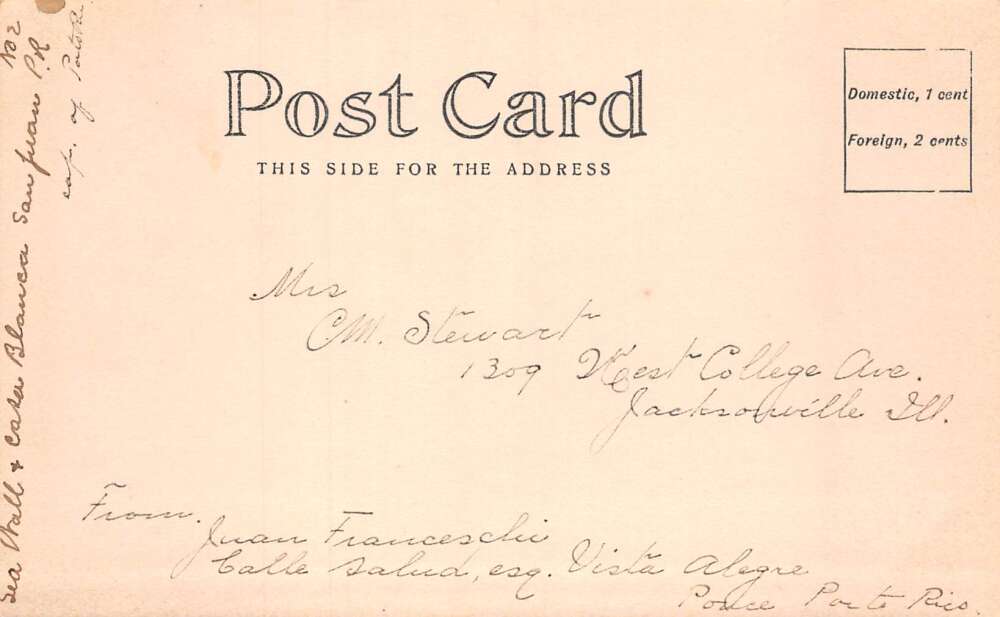 Post Card
THIS SIDE FOR THE ADDRESS
Domestic, 1 cent
Foreign, 2 cents
Mrs
C.M. Stewart
1309 West College Ave.
Jacksonville Ill.
From.
Juan Franceschi
Calle Salud, esq. Vista Alegre
Ponce Porto Rico.
No 2
Sea Wall + Casa Blanca San Juan P.R
cap. of Porto Rico